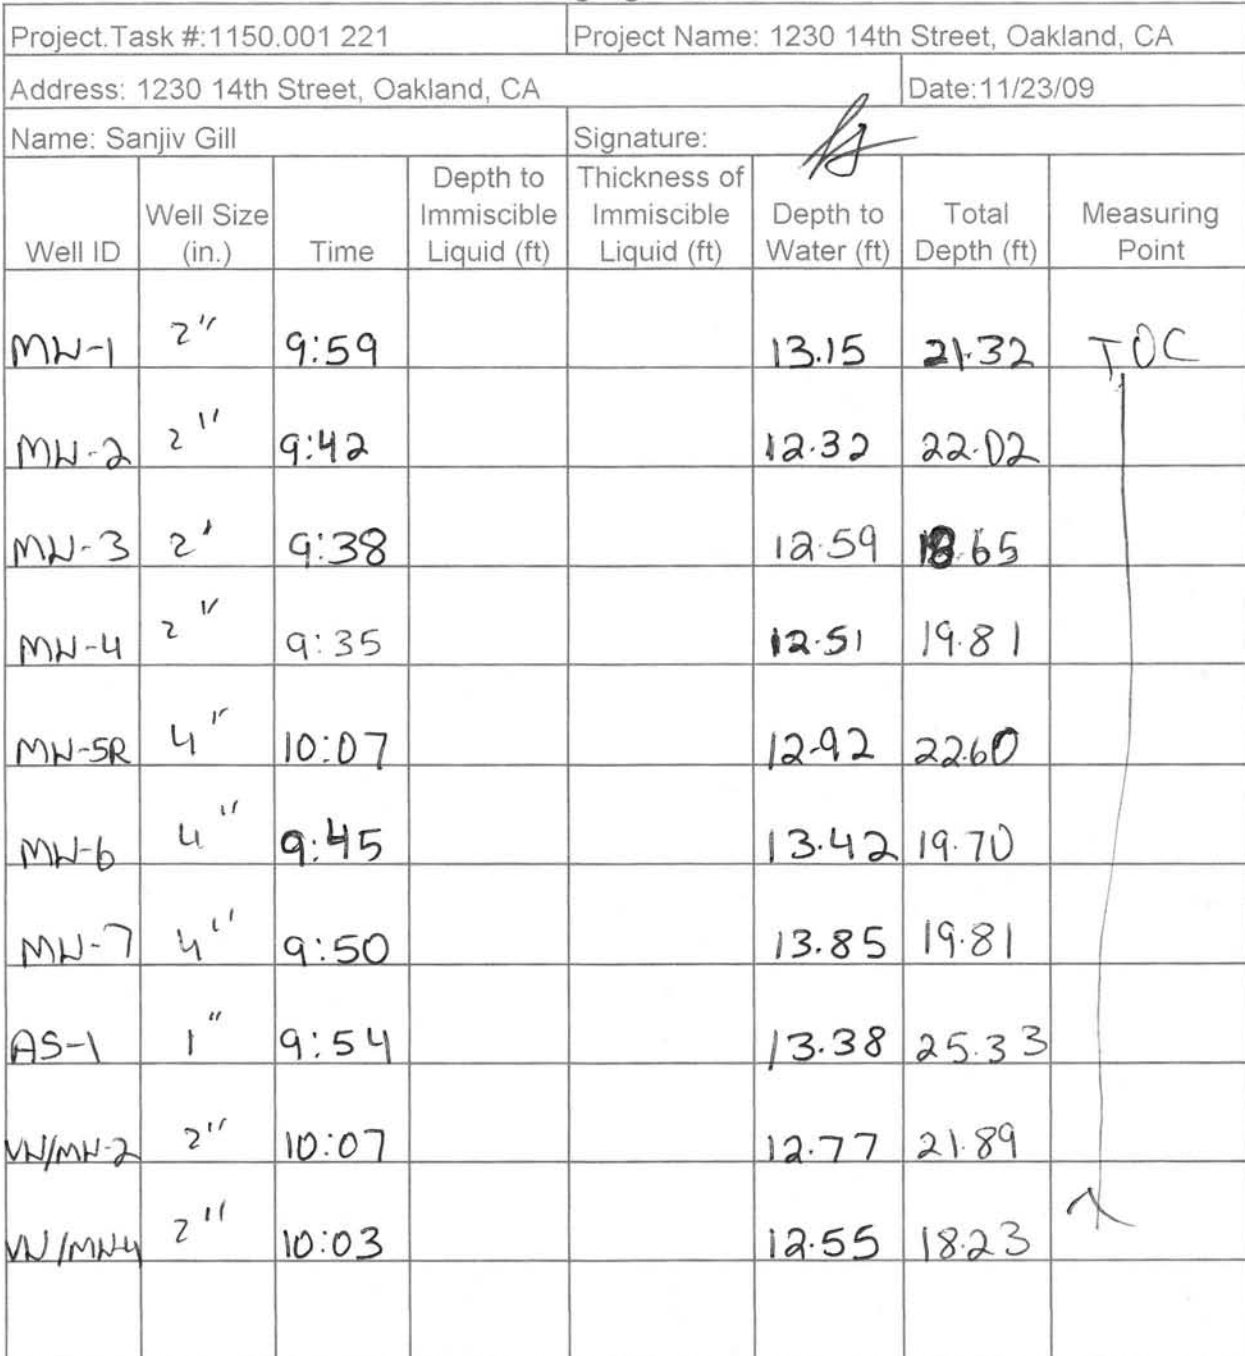 Project.Task #:1150.001 221 Project Name: 1230 14th Street, Oakland, CA
Address: 1230 14th Street, Oakland, CA Date:11/23/09
Name: Sanjiv Gill Signature:
Well ID Well Size (in.) Time Depth to Immiscible Liquid (ft) Thickness of Immiscible Liquid (ft) Depth to Water (ft) Total Depth (ft) Measuring Point
MW-1 2" 9:59 13.15 21.32 TOC
MW-2 2" 9:42 12.32 22.02
MW-3 2' 9:38 12.59 18.65
MW-4 2" 9:35 12.51 19.81
MW-5R 4" 10:07 12.92 22.60
MW-6 4" 9:45 13.42 19.70
MW-7 4" 9:50 13.85 19.81
AS-1 1" 9:54 13.38 25.33
VW/MW-2 2" 10:07 12.77 21.89
VW/MW4 2" 10:03 12.55 18.23